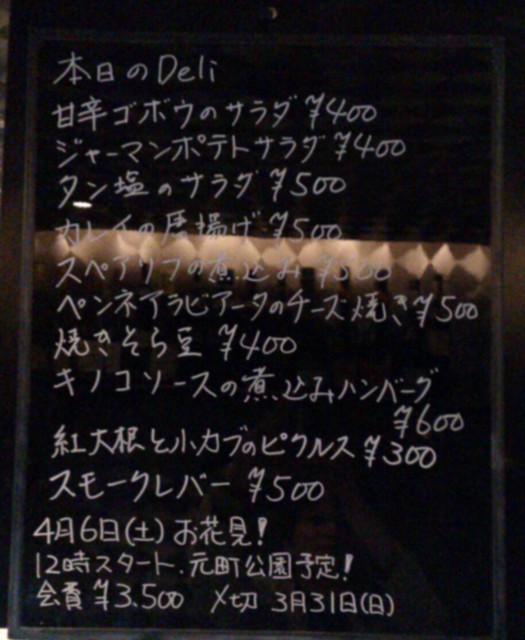 本日のDeli
甘辛ゴボウのサラダ ¥400
ジャーマンポテトサラダ ¥400
タン塩のサラダ ¥500
カレイの唐揚げ ¥500
スペアリブの煮込み ¥500
ペンネアラビアータのチーズ焼き ¥500
焼きそら豆 ¥400
キノコソースの煮込みハンバーグ
¥600
紅大根と小カブのピクルス ¥300
スモークレバー ¥500
4月6日(土) お花見!
12時スタート.元町公園予定!
会費 ¥3.500 〆切 3月31日(日)